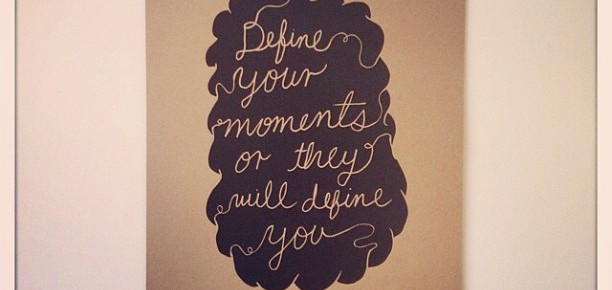 Define
your
moments
or they
will define
you